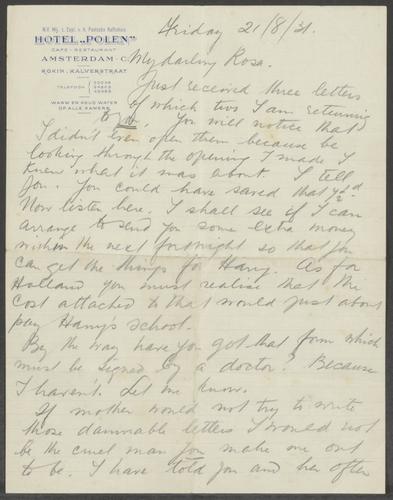 Friday 21/8/31.
N.V. Mij. t. Expl. v. h. Poolsche Koffiehuis
HOTEL „POLEN"
CAFE-RESTAURANT
AMSTERDAM-C.
ROKIN, KALVERSTRAAT
TELEFOON
WARM EN KOUD WATER
OP ALLE KAMERS
My darling Rosa.
Just received three letters
of which two I am returning
to you. You will notice that
I didn't even open them because be
looking through the opening I made I
knew what it was about. I tell
you. You could have saved that
Now listen here. I shall see if I can
arrange to send you some extra money
within the next fortnight so that you
can get the things for Harry. As for
Holland you must realise that the
cost attached to that would just about
pay Harrys school.
By the way have you got that form which
must be signed by a doctor? Because
I haven't. Let me know.
If mother would not try to write
those damnable letters I would not
be the cruel man you make one out
to be. I have told you and her often